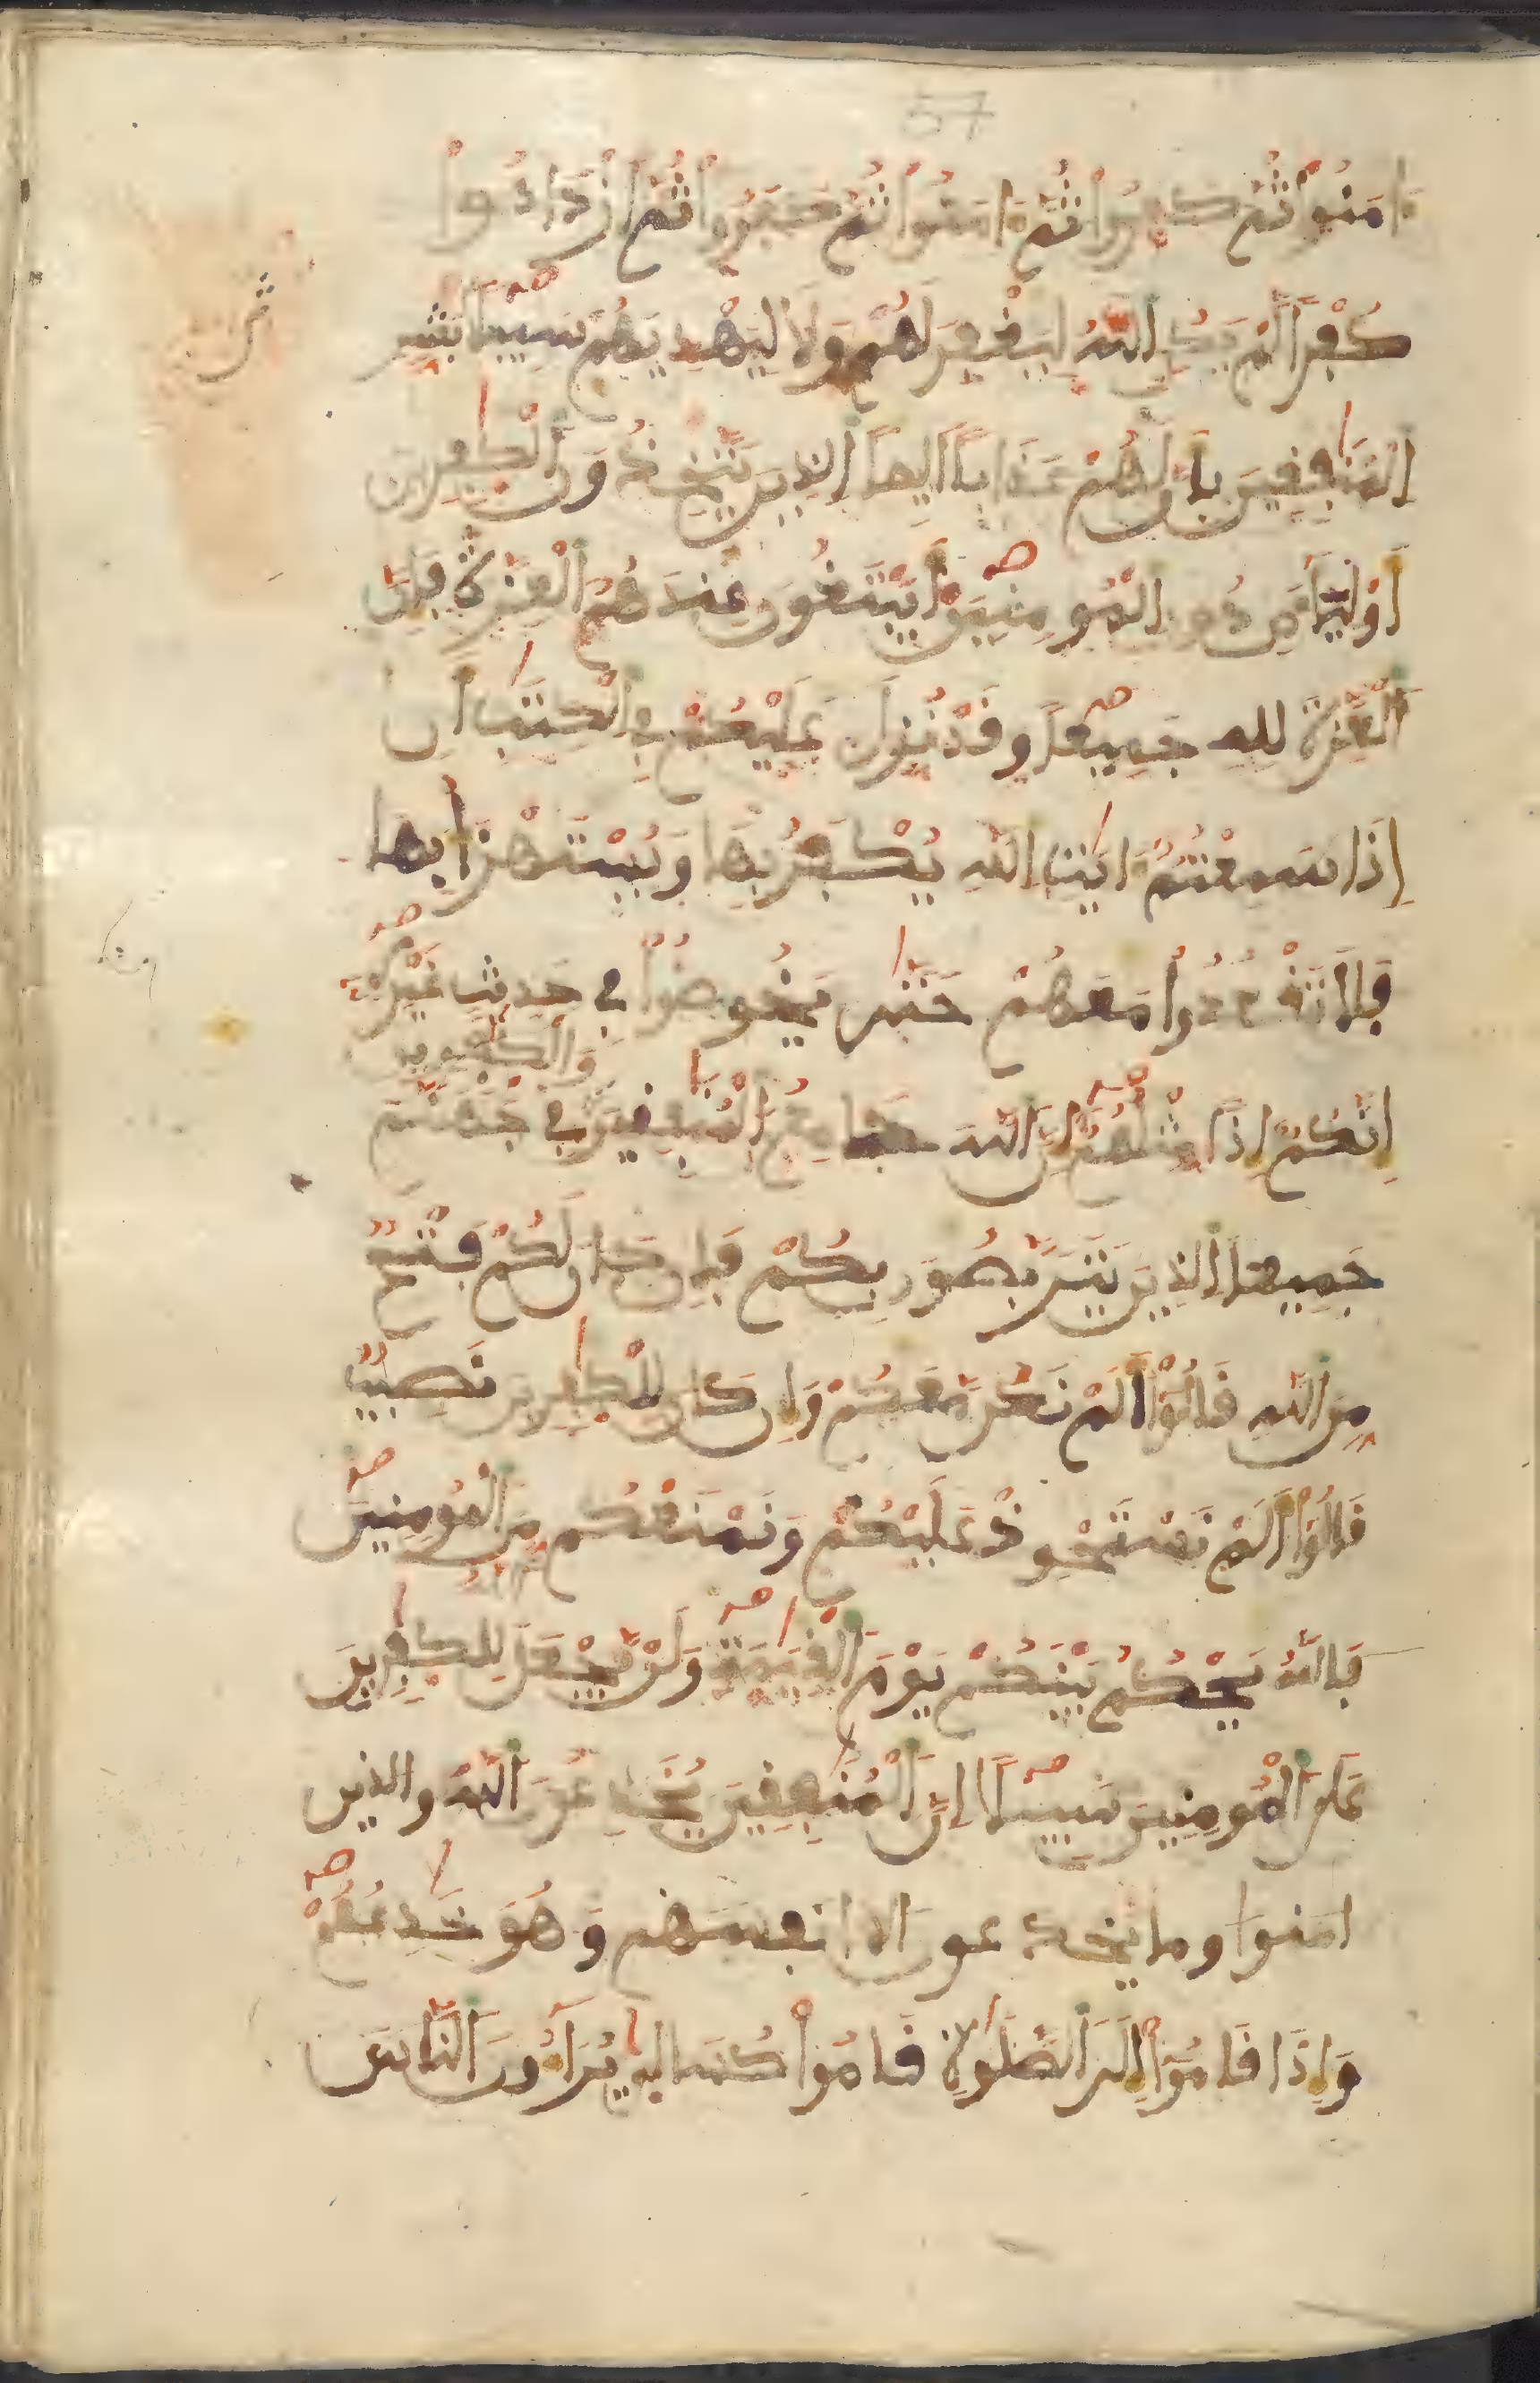 57
ءامَنُواْ ثُمَّ كَفَرُواْ ثُمَّ ءامَنُواْ ثُمَّ كَفَرُواْ ثُمَّ اَزْدَادُواْ
كُفْراً لَّمْ يَكُنِ اِللَّهُ لِيَغْفِرَ لَهُمْ وَلَا لِيَهْدِيَهُمْ سَبِيلًا بَشِّرِ
اِلْمُنَٰفِقِينَ بِأَنَّ لَهُمْ عَذَاباً اَلِيماً اِلذِينَ يَتَّخِذُونَ اَلْكَٰفِرِينَ
أَوْلِيَآءَ مِن دُونِ اِلْمُومِنِينَ أَيَبْتَغُونَ عِندَهُمُ اُلْعِزَّةَ فَإِنَّ
اَلْعِزَّةَ لِلهِ جَمِيعاً وَقَدْ نُزِّلَ عَلَيْكُمْ فِي اِلْكِتَٰبِ أَنِ
إِذَا سَمِعْتُمُ ءايَٰتِ اِللَّهِ يُكْفَرُ بِهَا وَيُسْتَهْزَأُ بِهَا
فَلَا تَقْعُدُواْ مَعَهُمْ حَتَّىٰ يَخُوضُواْ فِي حَدِيثٍ غَيْرِهِ
وَالْكَٰفِرِينَ
إِنَّكُمُ إِذاً مِّثْلُهُمُ إِنَّ اَللَّهَ جَامِعُ اُلْمُنَٰفِقِينَ فِي جَهَنَّمَ
جَمِيعاً اِلذِينَ يَتَرَبَّصُونَ بِكُمْ فَإِن كَانَ لَكُمْ فَتْحٌ
مِّنَ اَللَّهِ قَالُواْ أَلَمْ نَكُن مَّعَكُمْ وَإِن كَانَ لِلْكَٰفِرِينَ نَصِيبٌ
قَالُواْ أَلَمْ نَسْتَحْوِذْ عَلَيْكُمْ وَنَمْنَعْكُم مِّنَ اَلْمُومِنِينَ
فَاللَّهُ يَحْكُمُ بَيْنَكُمْ يَوْمَ اَلْقِيَٰمَةِ وَلَنْ يَّجْعَلَ اَللَّهُ لِلْكَٰفِرِينَ
عَلَى اَلْمُومِنِينَ سَبِيلًا إِنَّ اَلْمُنَٰفِقِينَ يُخَٰدِعُونَ اَللَّهَ والذين
امنوا وما يخدعون الا انفسهم وَهُوَ خَٰدِعُهُمْ
وَإِذَا قَامُواْ إِلَى اَلصَّلَوٰةِ قَامُواْ كُسَالىٰ يُرَآءُونَ اَلنَّاسَ